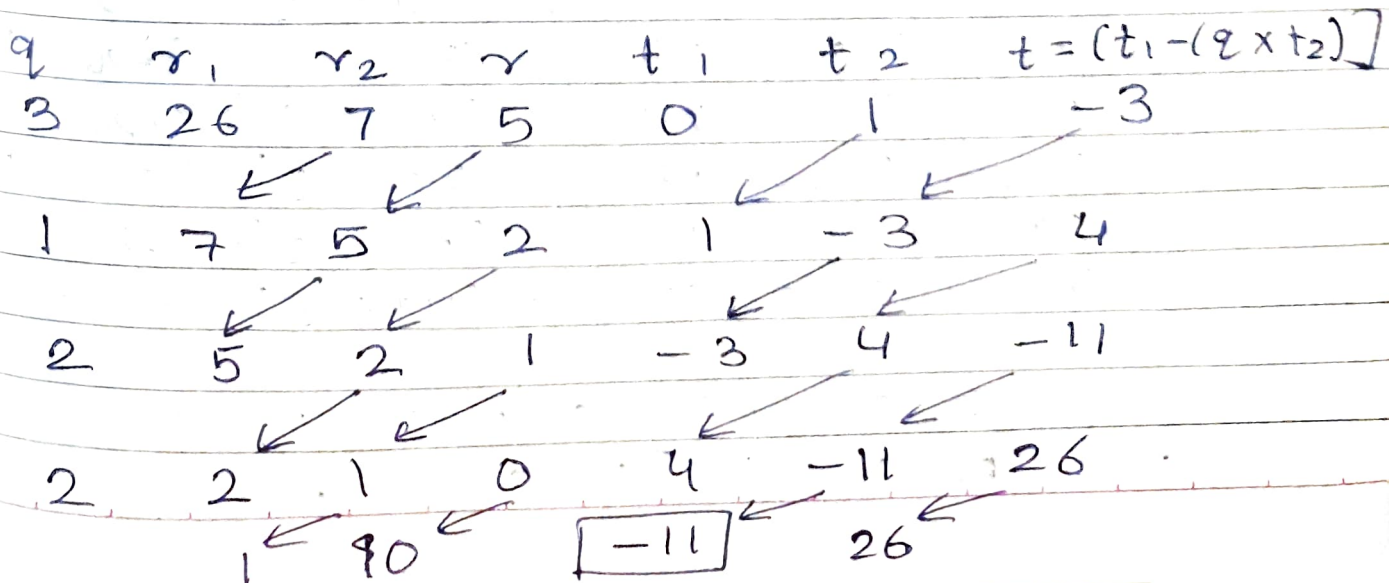 q r1 r2 r t1 t2 t = (t1-(q x t2)]
3 26 7 5 0 1 -3
1 7 5 2 1 -3 4
2 5 2 1 -3 4 -11
2 2 1 0 4 -11 26
1 0 -11 26